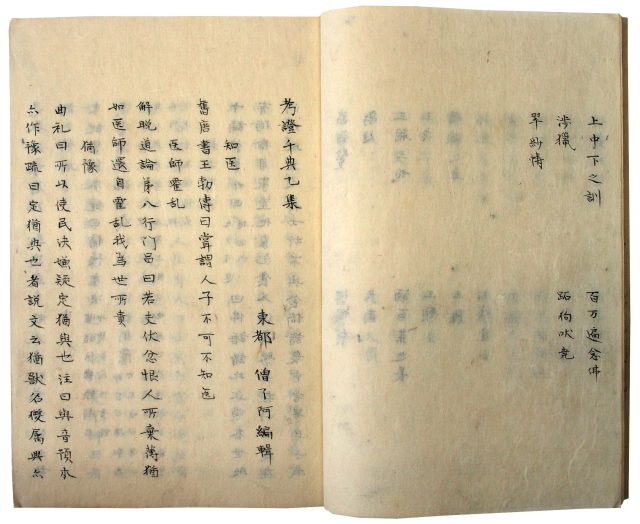 上中下之訓　百万遍念佛
渉獵　跖狗吠尭
翠紗傳
考證千典乙集
東都　僧了阿編輯
知医
舊唐書王勃傳曰嘗謂人子不可不知医
医師霍乱
解脱道論第八行门品曰若支伏忿恨人所棄薄猶
如医師還自霍乱我為世所責
猶豫
曲礼曰所以使民决嫌疑定猶與也注曰與音預本
亦作豫疏曰定猶與也者説文云猶獸名玃属與亦